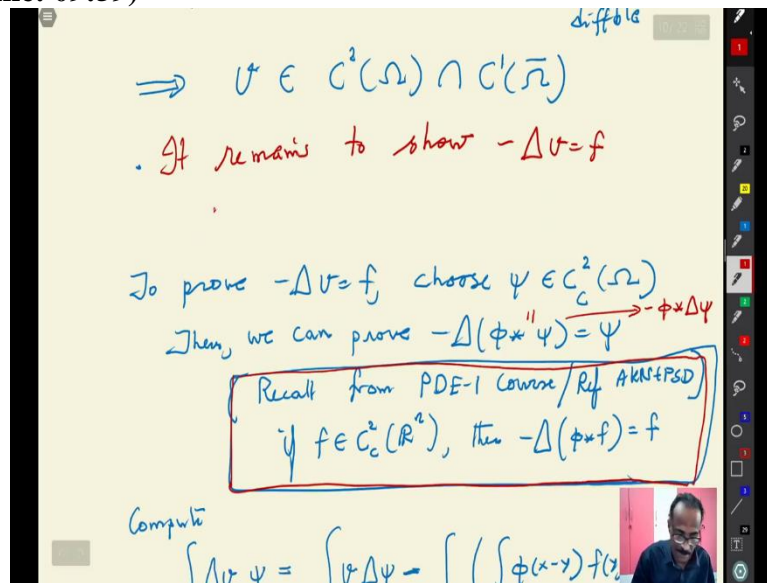 diffble
⟹ v ∈ C²(Ω) ∩ C¹(Ω̄)
. It remains to show -Δv = f
To prove -Δv = f, choose ψ ∈ C_c²(Ω)
Then, we can prove -Δ(φ*ψ) = ψ → -φ*Δψ
Recall from PDE-1 Course/Ref AKN+PSD
if f ∈ C_c²(ℝⁿ), then -Δ(φ*f) = f
Compute
∫Δv ψ = ∫vΔψ - ∫(∫φ(x-y) f(y